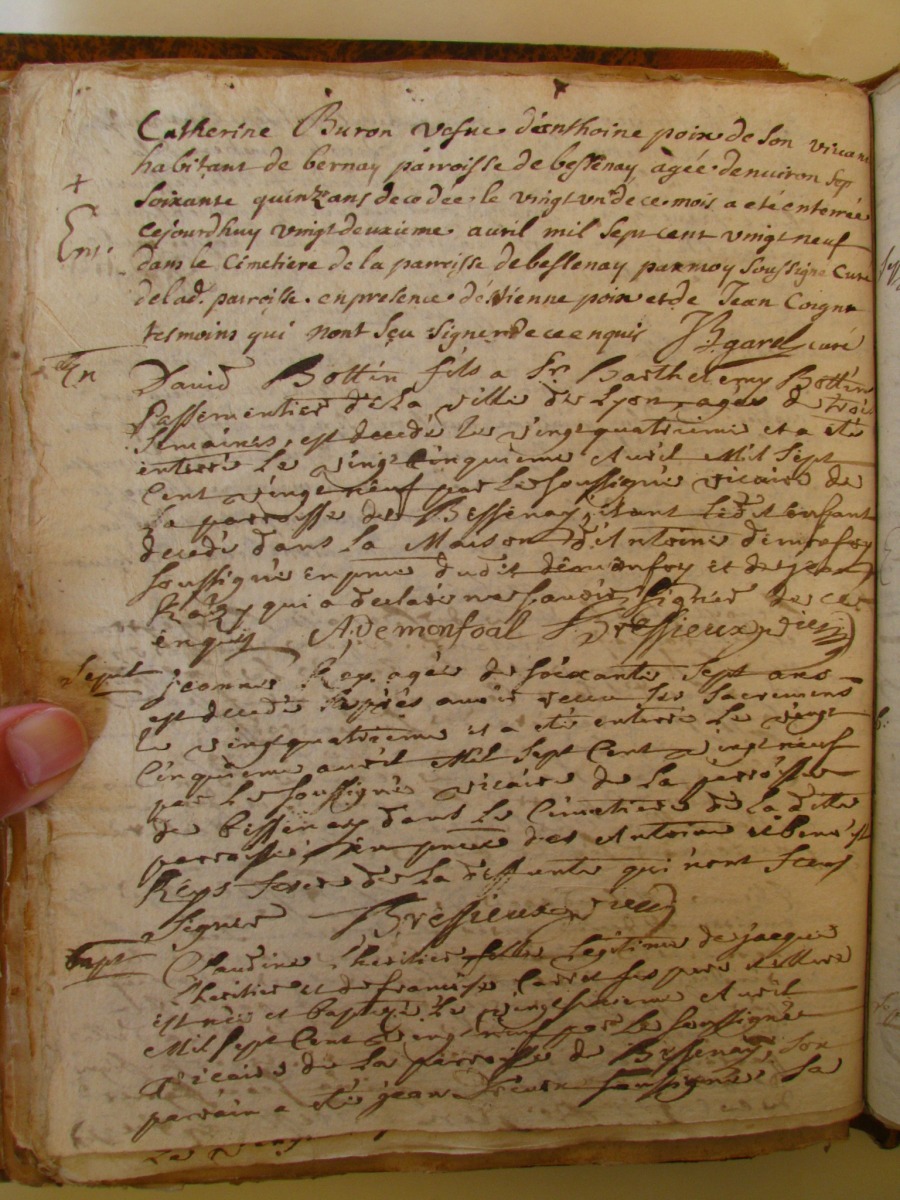 Catherine Buron vefue danthoine poix de son vivant
habitant de bernay parroisse de bessenay agée denuiron sep
soixante quinze ans decedée le vingt vn de ce mois a eté enterrée
+
Ent.
cejourdhuy vingt deuxieme avril mil sept cent vingt neuf
dans le Cimetiere de la parroisse de bessenay par moy soussigne Curé
de lad. parroisse en presence destienne poix et de Jean Coigne
tesmoins qui nont sçu signer de ce enquis garel curé
En
David Bottin fils a Sr. Barthelemy Bottin
Passementier de La ville de Lyon, agés de trois
semaines, est decedé le vingt quatrieme et a eté
enterré Le vingt cinquieme Avril Mil sept
Cent vingt neuf par Le soussigné vicaire de
La parroisse de Bessenay, étant Ledit enfant
decedé dans La Maison d'Antoine
soussigné en pnce dudit et de jean
qui a declaré ne sçavoir signer de ce
enquis A Demonfoal Bressieux vicaire
Sepult
jeanne Rey agée de soixante sept ans
est decedé après avoir receu les sacremens
le vingt quatrieme et a eté enterré Le vingt
Cinquieme avril Mil sept Cent vingt neuf
par Le soussigné vicaire de La parroisse
de bessenay dans Le Cimetiere de La ditte
parroisse, en pnce des Antoine et benoist
Reys de La deffunte qui n'ont sceus
signer Bressieux vicaire
Bapt
Claudine Lheritier fille Legitime de jacque
Lheritier et de françoise ses pere et mere
est née et baptizé Le vingt Avril
Mil sept Cent vingt neuf par Le soussigné
vicaire de La parroisse de Bessenay, son
parrain a eté jean soussigné La